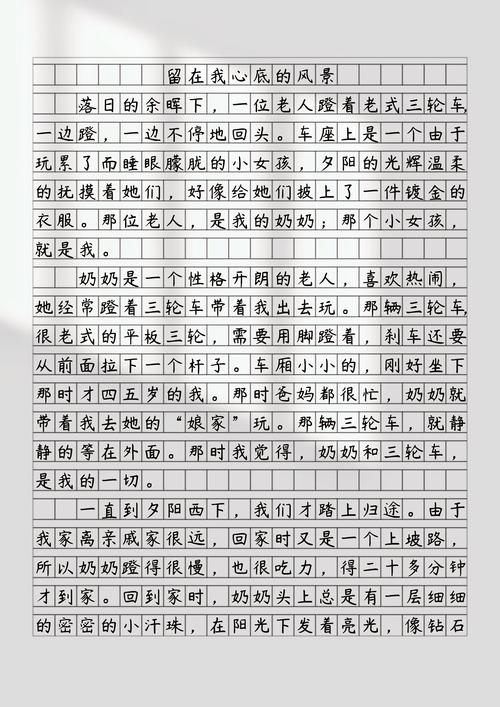 留在我心底的风景
落日的余晖下，一位老人蹬着老式三轮车，
一边蹬，一边不停地回头。车座上是一个由于
玩累了而睡眼朦胧的小女孩，夕阳的光辉温柔
的抚摸着她们，好像给她们披上了一件镀金的
衣服。那位老人，是我的奶奶；那个小女孩，
就是我。
奶奶是一个性格开朗的老人，喜欢热闹，
她经常蹬着三轮车带着我出去玩。那辆三轮车，
很老式的平板三轮，需要用脚蹬着，刹车还要
从前面拉下一个杆子。车厢小小的，刚好坐下
那时才四五岁的我。那时爸妈都很忙，奶奶就
带着我去她的“娘家”玩。那辆三轮车，就静
静的等在外面。那时我觉得，奶奶和三轮车，
是我的一切。
一直到夕阳西下，我们才踏上归途。由于
我家离亲戚家很远，回家时又是一个上坡路，
所以奶奶蹬得很慢，也很吃力，得二十多分钟
才到家。回到家时，奶奶头上总是有一层细细
的密密的小汗珠，在阳光下发着亮光，像钻石